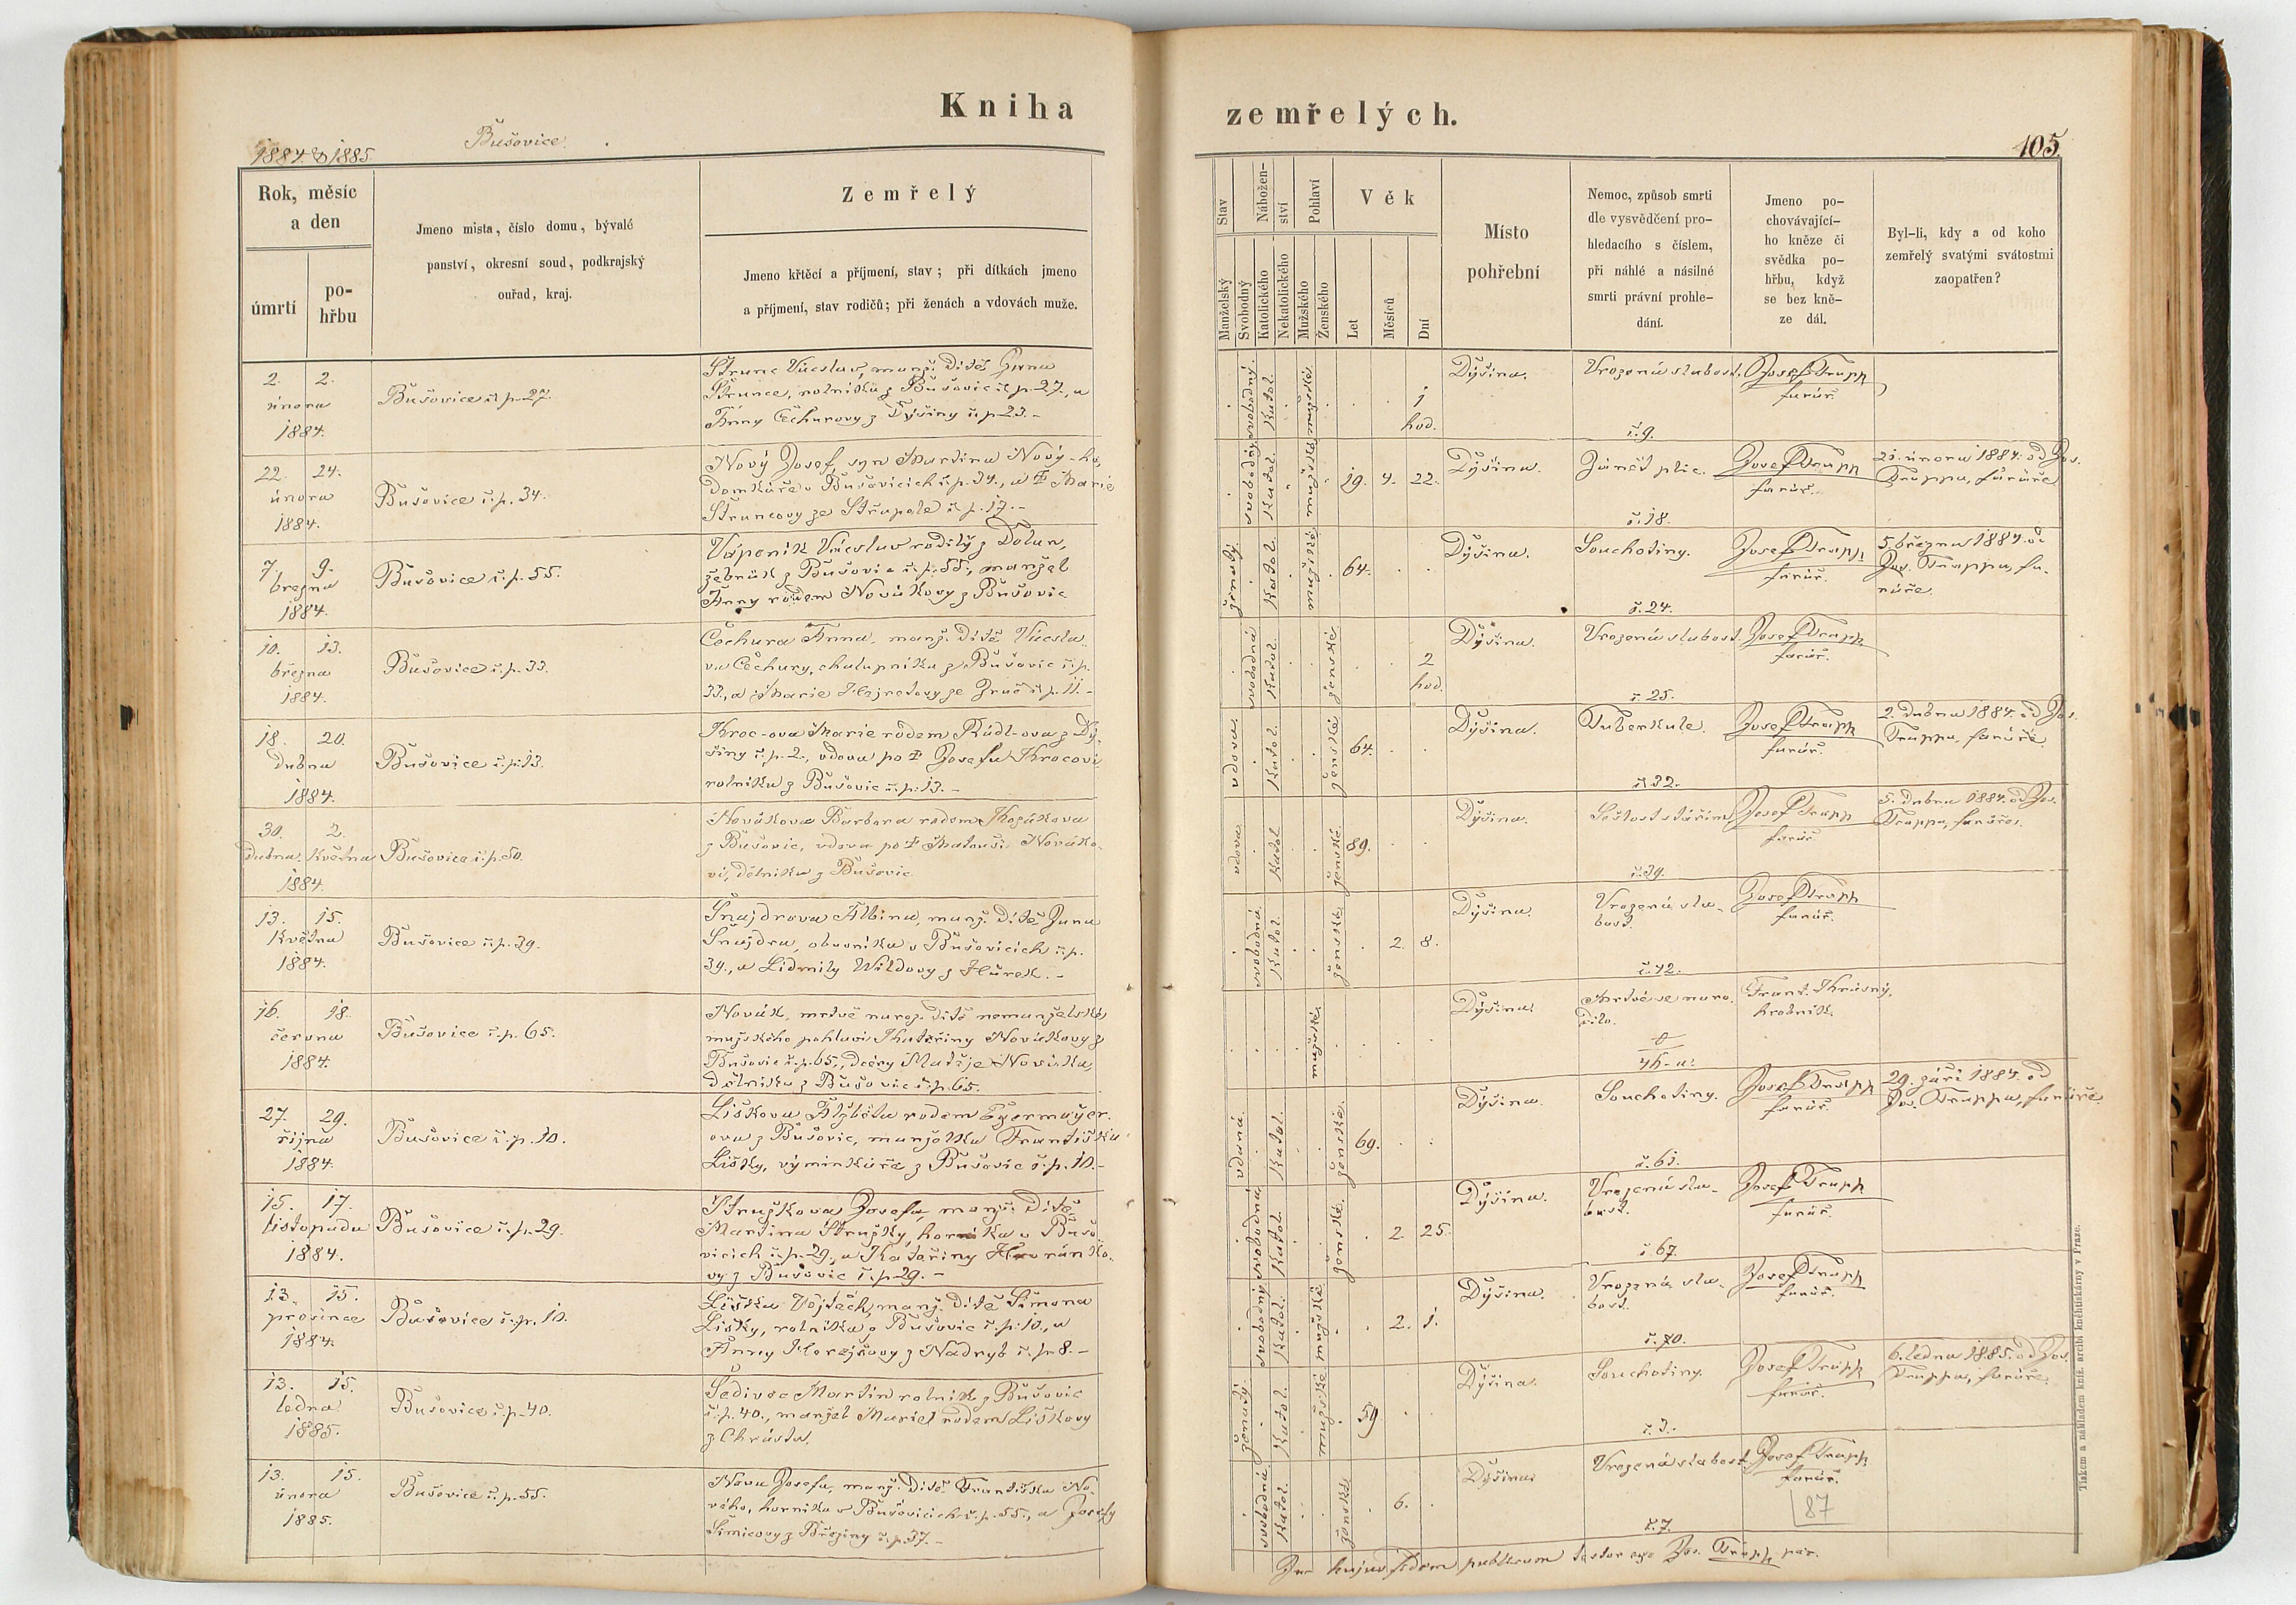 Kniha
zemřelých.
1884 & 1885.
Bušovice.
105.
Rok, měsíc
a den
úmrtí
po-
hřbu
Jmeno mista, číslo domu, bývalé
panství, okresní soud, podkrajský
ouřad, kraj.
Zemřelý
Jmeno křtěcí a příjmení, stav; při dítkách jmeno
a příjmení, stav rodičů; při ženách a vdovách muže.
Stav
Manželský
Svobodný
Nábožen-
ství
Katolického
Nekatolického
Pohlaví
Mužského
Ženského
Věk
Let
Měsíců
Dní
Místo
pohřební
Nemoc, způsob smrti
dle vysvědčení pro-
hledacího s číslem,
při náhlé a násilné
smrti právní prohle-
dání.
Jmeno po-
chovávající-
ho kněze či
svědka po-
hřbu, když
se bez kně-
ze dál.
Byl-li, kdy a od koho
zemřelý svatými svátostmi
zaopatřen?
2. 2.
února
1884.
Bušovice č. p. 27.
Štrunc Václav, manž. dítě Jana
Štrunce, rolníka z Bušovic č. p. 27., a
Anny Čechurovy z Dýšiny č. p. 23. –
svobodný. Katol. mužské
1
hod.
Dýšina.
Vrozená slabost.
č. 9.
Josef Trapp
farář.
22. 24.
února
1884.
Bušovice č. p. 34.
Nový Josef, syn Martina Nový-ho,
domkáře v Bušovicích č. p. 34., a † Marie
Štruncovy ze Střapole č. p. 17. –
svobodný Katol. mužské
19. 4. 22.
Dýšina.
Zánět plic.
č. 18.
Josef Trapp
farář.
21. února 1884. od Jos.
Trappa, faráře
7. 9.
března
1884.
Bušovice č. p. 55.
Vápeník Václav rodilý z Dolan,
žebrák z Bušovic č. p. 55., manžel
Anny rodem Novákovy z Bušovic
ženatý. Katol. mužské
64.
Dýšina.
Souchotiny.
č. 24.
Josef Trapp
farář.
5. března 1884. od
Jos. Trappa, fa-
ráře.
10. 13.
března
1884.
Bušovice č. p. 33.
Čechura Anna, manž. dítě Václa-
va Čechury, chalupníka z Bušovic č. p.
33., a Marie Hajretovy ze Zruč č. p. 11. –
svobodná Katol. ženské
2
hod.
Dýšina.
Vrozená slabost.
č. 25.
Josef Trapp
farář.
18. 20.
dubna
1884.
Bušovice č. p. 13.
Kroc-ova Marie rodem Rádl-ova z Dý-
šiny č. p. 2., vdova po † Josefu Krocovi
rolníku z Bušovic č. p. 13. –
vdova. Katol. ženské
64.
Dýšina.
Tuberkule.
č. 32.
Josef Trapp
farář.
2. dubna 1884. od Jos.
Trappa, faráře.
30. 2.
dubna. Května
1884.
Bušovice č. p. 50.
Nováková Barbora rodem Kozákova
z Bušovic, vdova po † Matouši Nováko-
vi, dělníku z Bušovic
vdova Katol ženské
89.
Dýšina.
Sešlost stářím
č. 39.
Josef Trapp
farář
5. dubna 1884. od Jos.
Trappa, faráře.
13. 15.
Května
1884.
Bušovice č. p. 39.
Šnajdrova Albina, manž. dítě Jana
Šnajdra, obuvníka v Bušovicích č. p.
39., a Lidmily Wildovy z Hůrek. –
svobodná Katol. ženské
2. 8.
Dýšina.
Vrozená sla-
bost.
č. 42.
Josef Trapp
farář.
16. 18.
června
1884.
Bušovice č. p. 65.
Novák, mrtvě naroz. dítě nemanželské
mužského pohlaví Kateřiny Novákovy z
Bušovic č. p. 65., dcery Matěje Nováka,
dělníka z Bušovic č. p. 65.
mužské
Dýšina.
Mrtvé se naro-
dilo.
46. a.
Frant. Krásný,
hrobník.
27. 29.
října
1884.
Bušovice č. p. 10.
Liškova Alžběta rodem Egermajer-
ova z Bušovic, manželka Františka
Lišky, výminkáře z Bušovic č. p. 10. –
vdaná. Katol. ženské.
69.
Dýšina.
Souchotiny.
č. 61.
Josef Trapp
farář.
29. září 1884. od
Jos. Trappa, faráře.
15. 17.
listopadu
1884.
Bušovice č. p. 29.
Stružkova Josefa, manž. dítě
Martina Stružky, horníka v Bušo-
vicích č. p. 29., a Kateřiny Havránko-
vy z Bušovic č. p. 29. –
svobodná Katol. ženské.
2. 25.
Dýšina.
Vrozená sla-
bost.
č. 67.
Josef Trapp
farář.
13. 15.
prosince
1884.
Bušovice č. p. 10.
Liška Vojtěch, manž. dítě Šimona
Lišky, rolníka z Bušovic č. p. 10., a
Anny Horejšovy z Nadryb č. p. 8. –
svobodný Katol. mužské
2. 1.
Dýšina.
Vrozená sla-
bost.
č. 70.
Josef Trapp
farář.
13. 15.
ledna
1885.
Bušovice č. p. 40.
Šedivec Martin rolník z Bušovic
č. p. 40., manžel Marie rodem Liškovy
z Chrásta.
ženatý. Katol. mužské
59
Dýšina.
Souchotiny.
č. 3.
Josef Trapp
farář.
6. ledna 1885. od Jos.
Trappa, faráře.
13. 15.
února
1885.
Bušovice č. p. 55.
Nova Josefa, manž. dítě Františka No-
vého, horníka v Bušovicích č. p. 55., a Josefy
Šimicovy z Březiny č. p. 37. –
svobodná Katol. ženské
6.
Dýšina
Vrozená slabost
č. 7.
Josef Trapp
farář.
87
In hujus fidem publicam testor ego Jos. Trapp par.
Tiskem a nákladem kníž. arcibi. knihtiskárny v Praze.